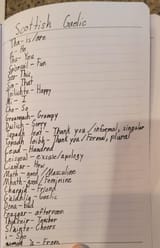 Scottish Gaelic
Tha - is/are
E - He
Thu - You
Spòrsail - Fun
Sar Thu
Sin - That
Toilichte - Happy
Mi - I
Cha - So
Greannach - Grumpy
Tapadh leat - Thank you / informal, singular
Tapadh leibh - Thank you / Formal, plural
Ceud - Hundred
Leisgeul - excuse/apology
Ciamar - How
Math - good / Masculine
Mhath - good / Feminine
Charaid - Friend
Gàidhlig - Gaelic
Dona - bad
Feasgar - afternoon
Tidsear - Teacher
Slàinte - Cheers
- She
- From